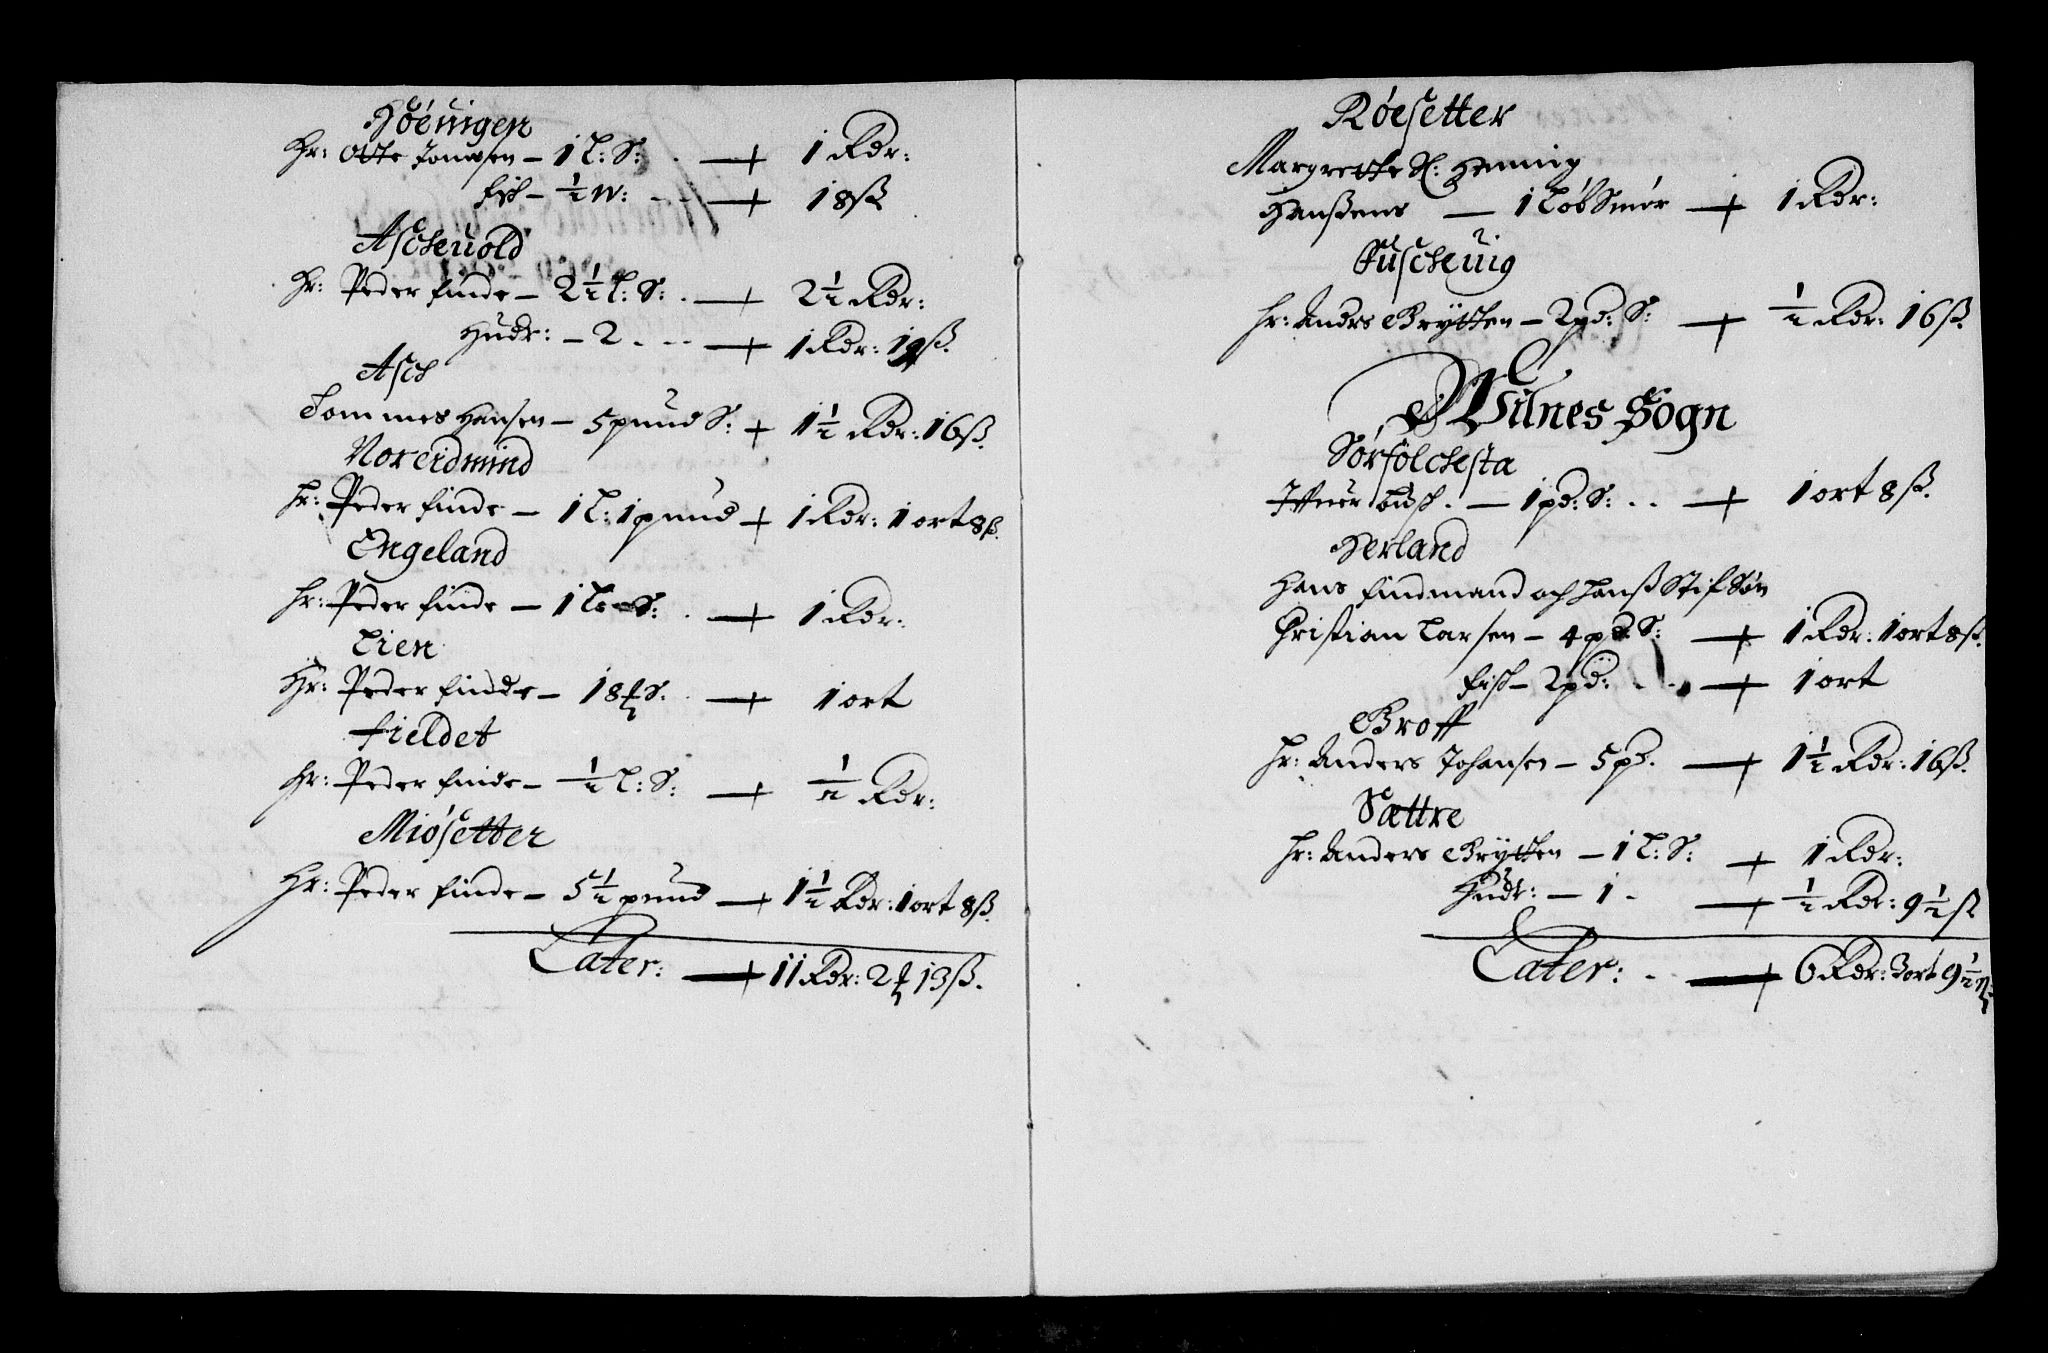 Høeuigen
Hr: Otte Jonasen – 1 L: S: . — 1 Rdr:
fisk – ½ W: . - — 18 ß
Ascheuold
Hr: Peder finde – 2½ L: S: . — 2½ Rdr:
Huder: – 2 . - - — 1 Rdr: 19 ß.
Asch
Tommes Hansen – 5 pund S: 1½ Rdr: 16 ß.
Noreidmind
Hr: Peder finde – 1 L: 1 pund 1 Rdr: 1 ort 8 ß.
Engeland
Hr: Peder finde – 1 L: S: . — 1 Rdr:
Lien
Hr: Peder finde – 18 S. — 1 ort
fieldet
Hr: Peder finde – ½ L: S: — ½ Rdr:
Miøsetter
Hr: Peder finde – 5½ pund — 1½ Rdr: 1 ort 8 ß.
Later: — 11 Rdr: 2 13 ß.
Røesetter
Margrette Sl: Henning
Hanßens — 1 Løb Smør — 1 Rdr:
Fuscheuig
Hr: Anders Brytten – 2 pd: S: — ½ Rdr: 16 ß.
Wilnes Sogn
Sørfolchesta
– 1 pd: S: . . — 1 ort 8 ß.
Herland
Hans findmand och Hanß Stifsøn
Christian Larsen – 4 pd S: — 1 Rdr: 1 ort 8 ß.
fisk – 2 pd: . - . — 1 ort
Broff
Hr: Anders Johansen – 5 pd. — 1½ Rdr: 16 ß.
Sættre
Hr: Anders Brytten – 1 L: S: — 1 Rdr:
Hudr: – 1 - — ½ Rdr: 9½ ß
Later: . - — 6 Rdr: 3 ort 9½ ß: